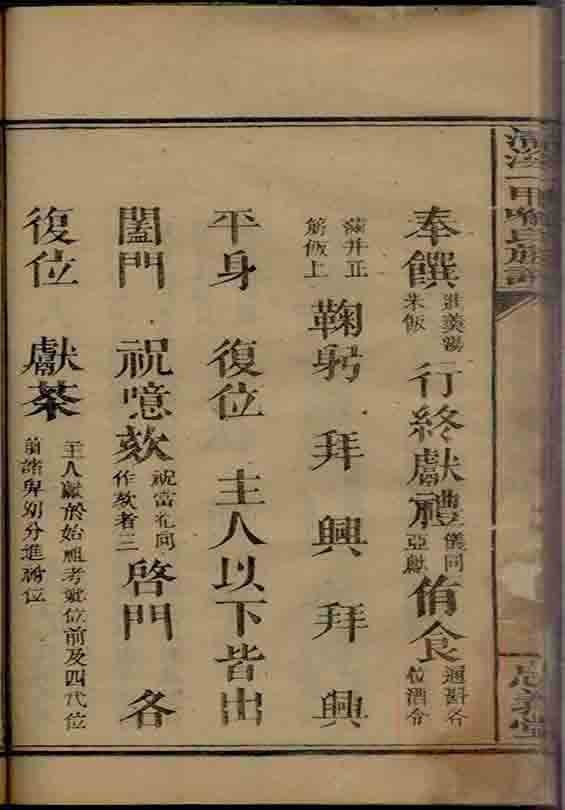 奉饌進羹湯米飯行終獻禮儀同亞獻侑食通斟各位酒令
滿并正筯飯上鞠躬 拜 興 拜 興
平身 復位 主人以下皆出
闔門 祝噫欬祝當門同作欬者三啓門 各
復位 獻茶主人獻於始祖考妣位前及四代位前諸卑別分進祔位
一甲喻氏族譜